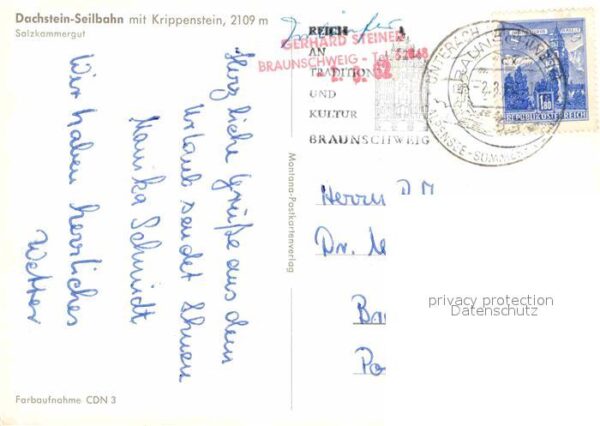 Dachstein-Seilbahn mit Krippenstein, 2109 m
Salzkammergut
Herzliche Grüße aus dem
Urlaub sendet Ihnen
Schmidt
Wir haben herrliches
Wetter
Farbaufnahme CDN 3
Montana-Postkartenverlag
REICH
AN
TRADITION
UND
KULTUR
BRAUNSCHWEIG
GERHARD STEINER
BRAUNSCHWEIG - Tel.
62
BRAUNSCHWEIG
UNTERACH
1.80
REPUBLIK ÖSTERREICH
Herrn
Dr. M
privacy protection
Datenschutz